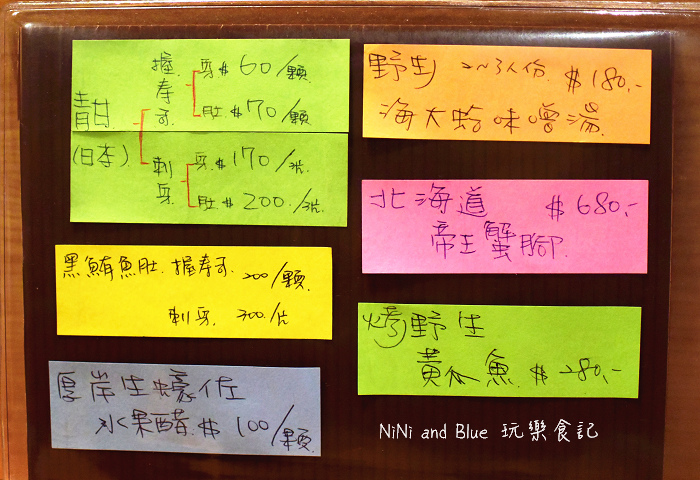 握寿司 身$60/顆
肚$70/顆
青甘
(日本)
刺身 身$170/3片
肚$200/3片
黑鮪魚肚 握寿司 200/顆
刺身 300/片
厚岸生蠔佐
水果醋 $100/顆
野生 2~3人份 $180.-
海大蛤味噌湯
北海道 $680.-
帝王蟹腳
烤野生
黃瓜魚 $280.-
NiNi and Blue 玩樂食記